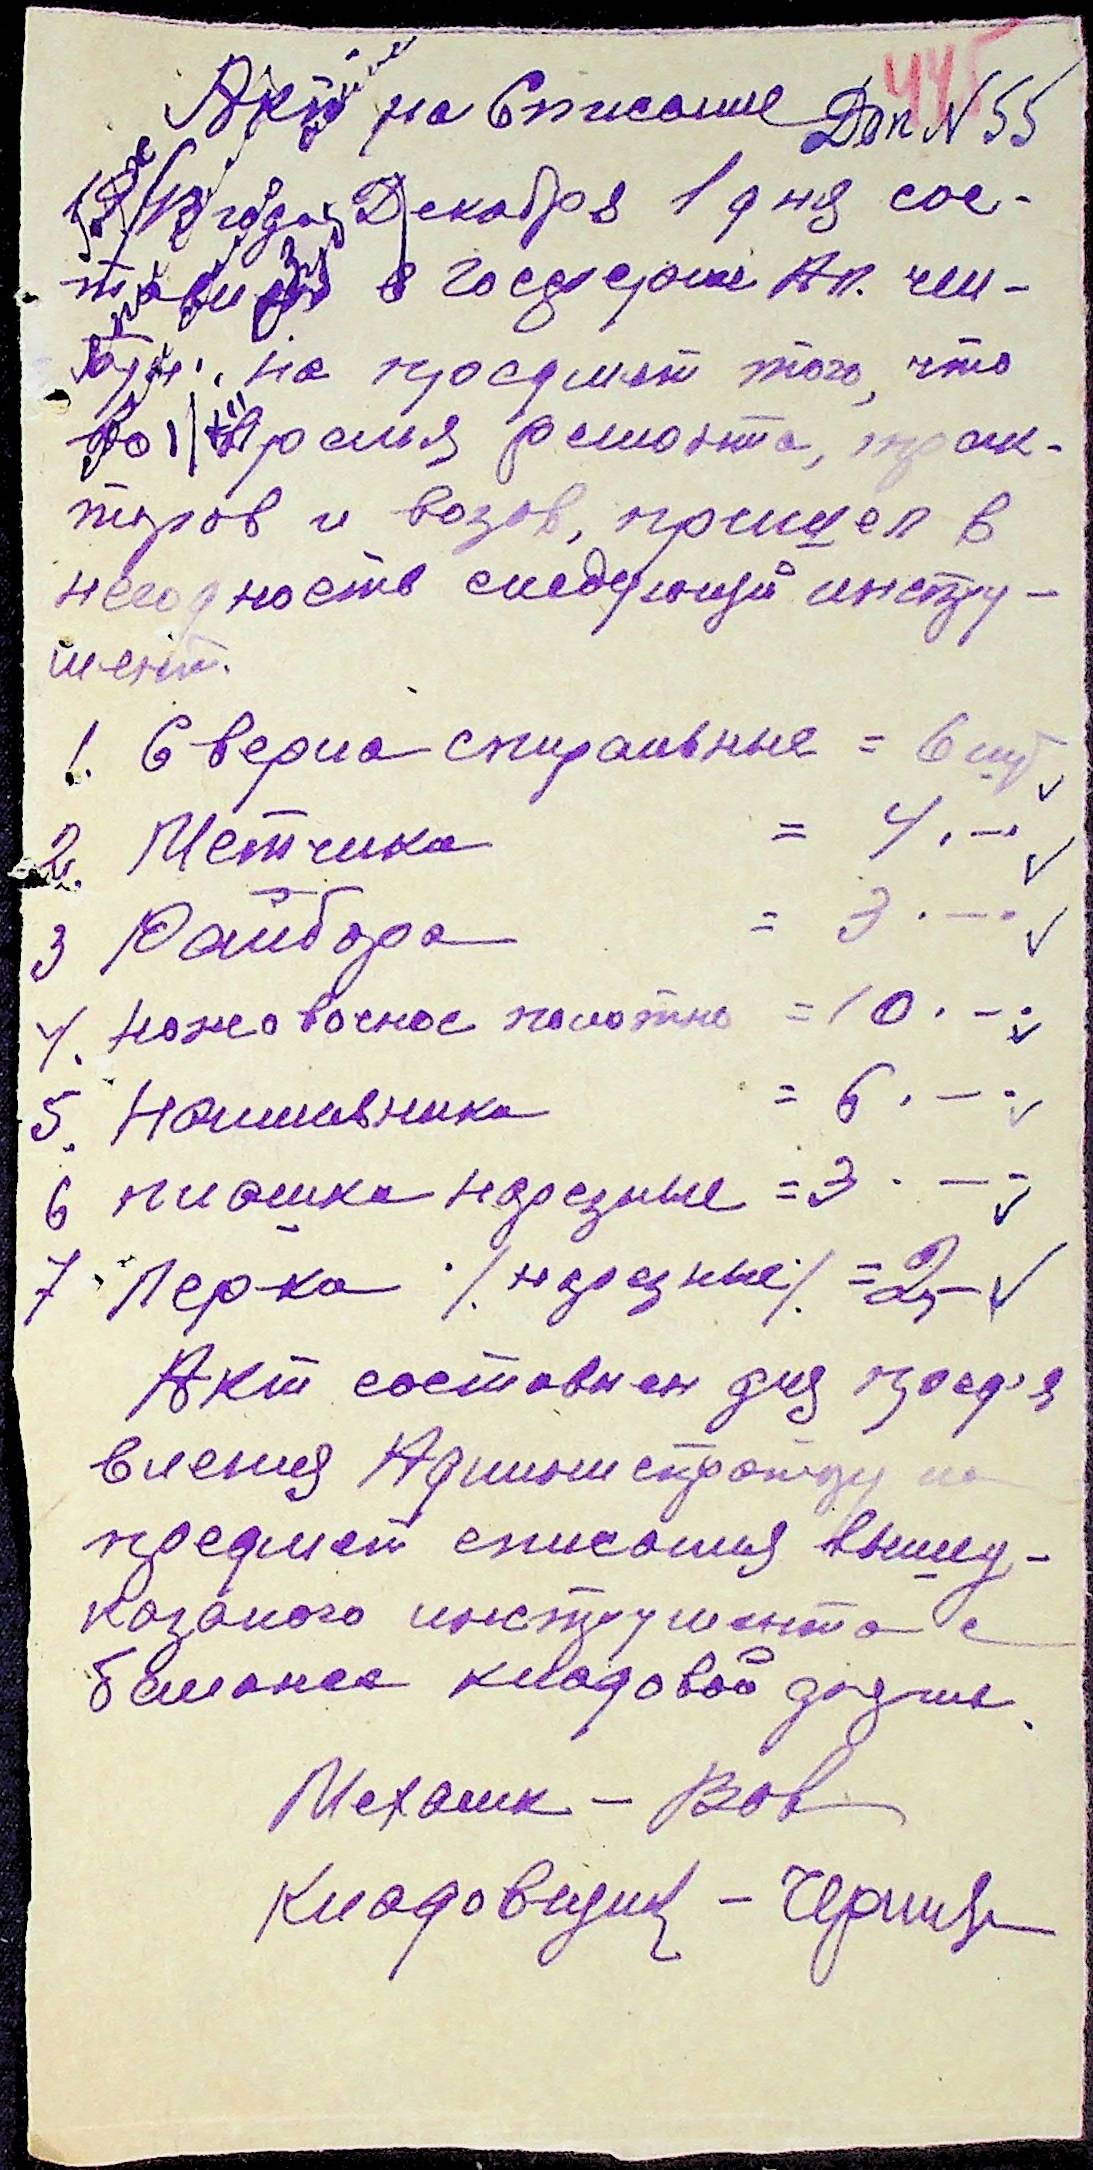 445
Акт на Списание Доп N 55
1942 года Декабря 1 дня сос-
тавили в Госдержи Ап.
на предмет того, что
во время ремонта, трак-
торов и возов, пришел в
негодность следующий инстру-
мент.
1. Сверла спиральные = 6 шт
2. Метчика = 4 . — .
3 Райбора = 3 . — .
4. Ножовочное полотно = 10 . — .
5. Напильника = 6 . — .
6 плашка нарезные = 3 . — .
7 Лерка ./. нарезные ./. = 2 —
Акт составлен для пред'я
вления Администратору на
предмет списания вышеу-
казаного инструмента с
баланса кладовой
Механик — Вов
Кладовщик —